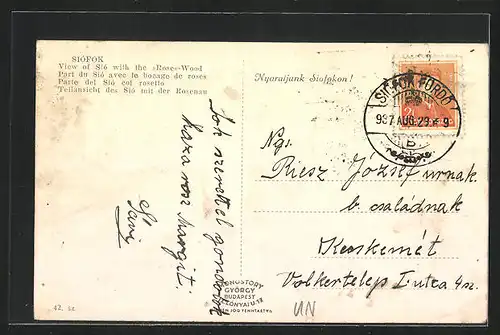 SIÓFOK
View of Sió with the »Rose«-Wood
Port du Sió avec le bocage de roses
Parte del Sió col rosetto
Teilansicht des Sió mit der Rosenau
Nyaraljunk Siófokon!
SIÓFOK FÜRDŐ
937 AUG. 29
B
Sok szeretettel gondolok
haza rosz Margit.
Ng.
Riesz József urnak
b. családnak
Kecskemét
Volkertelep I utca 4 sz.
GYÖRGY
BUDAPEST
UN